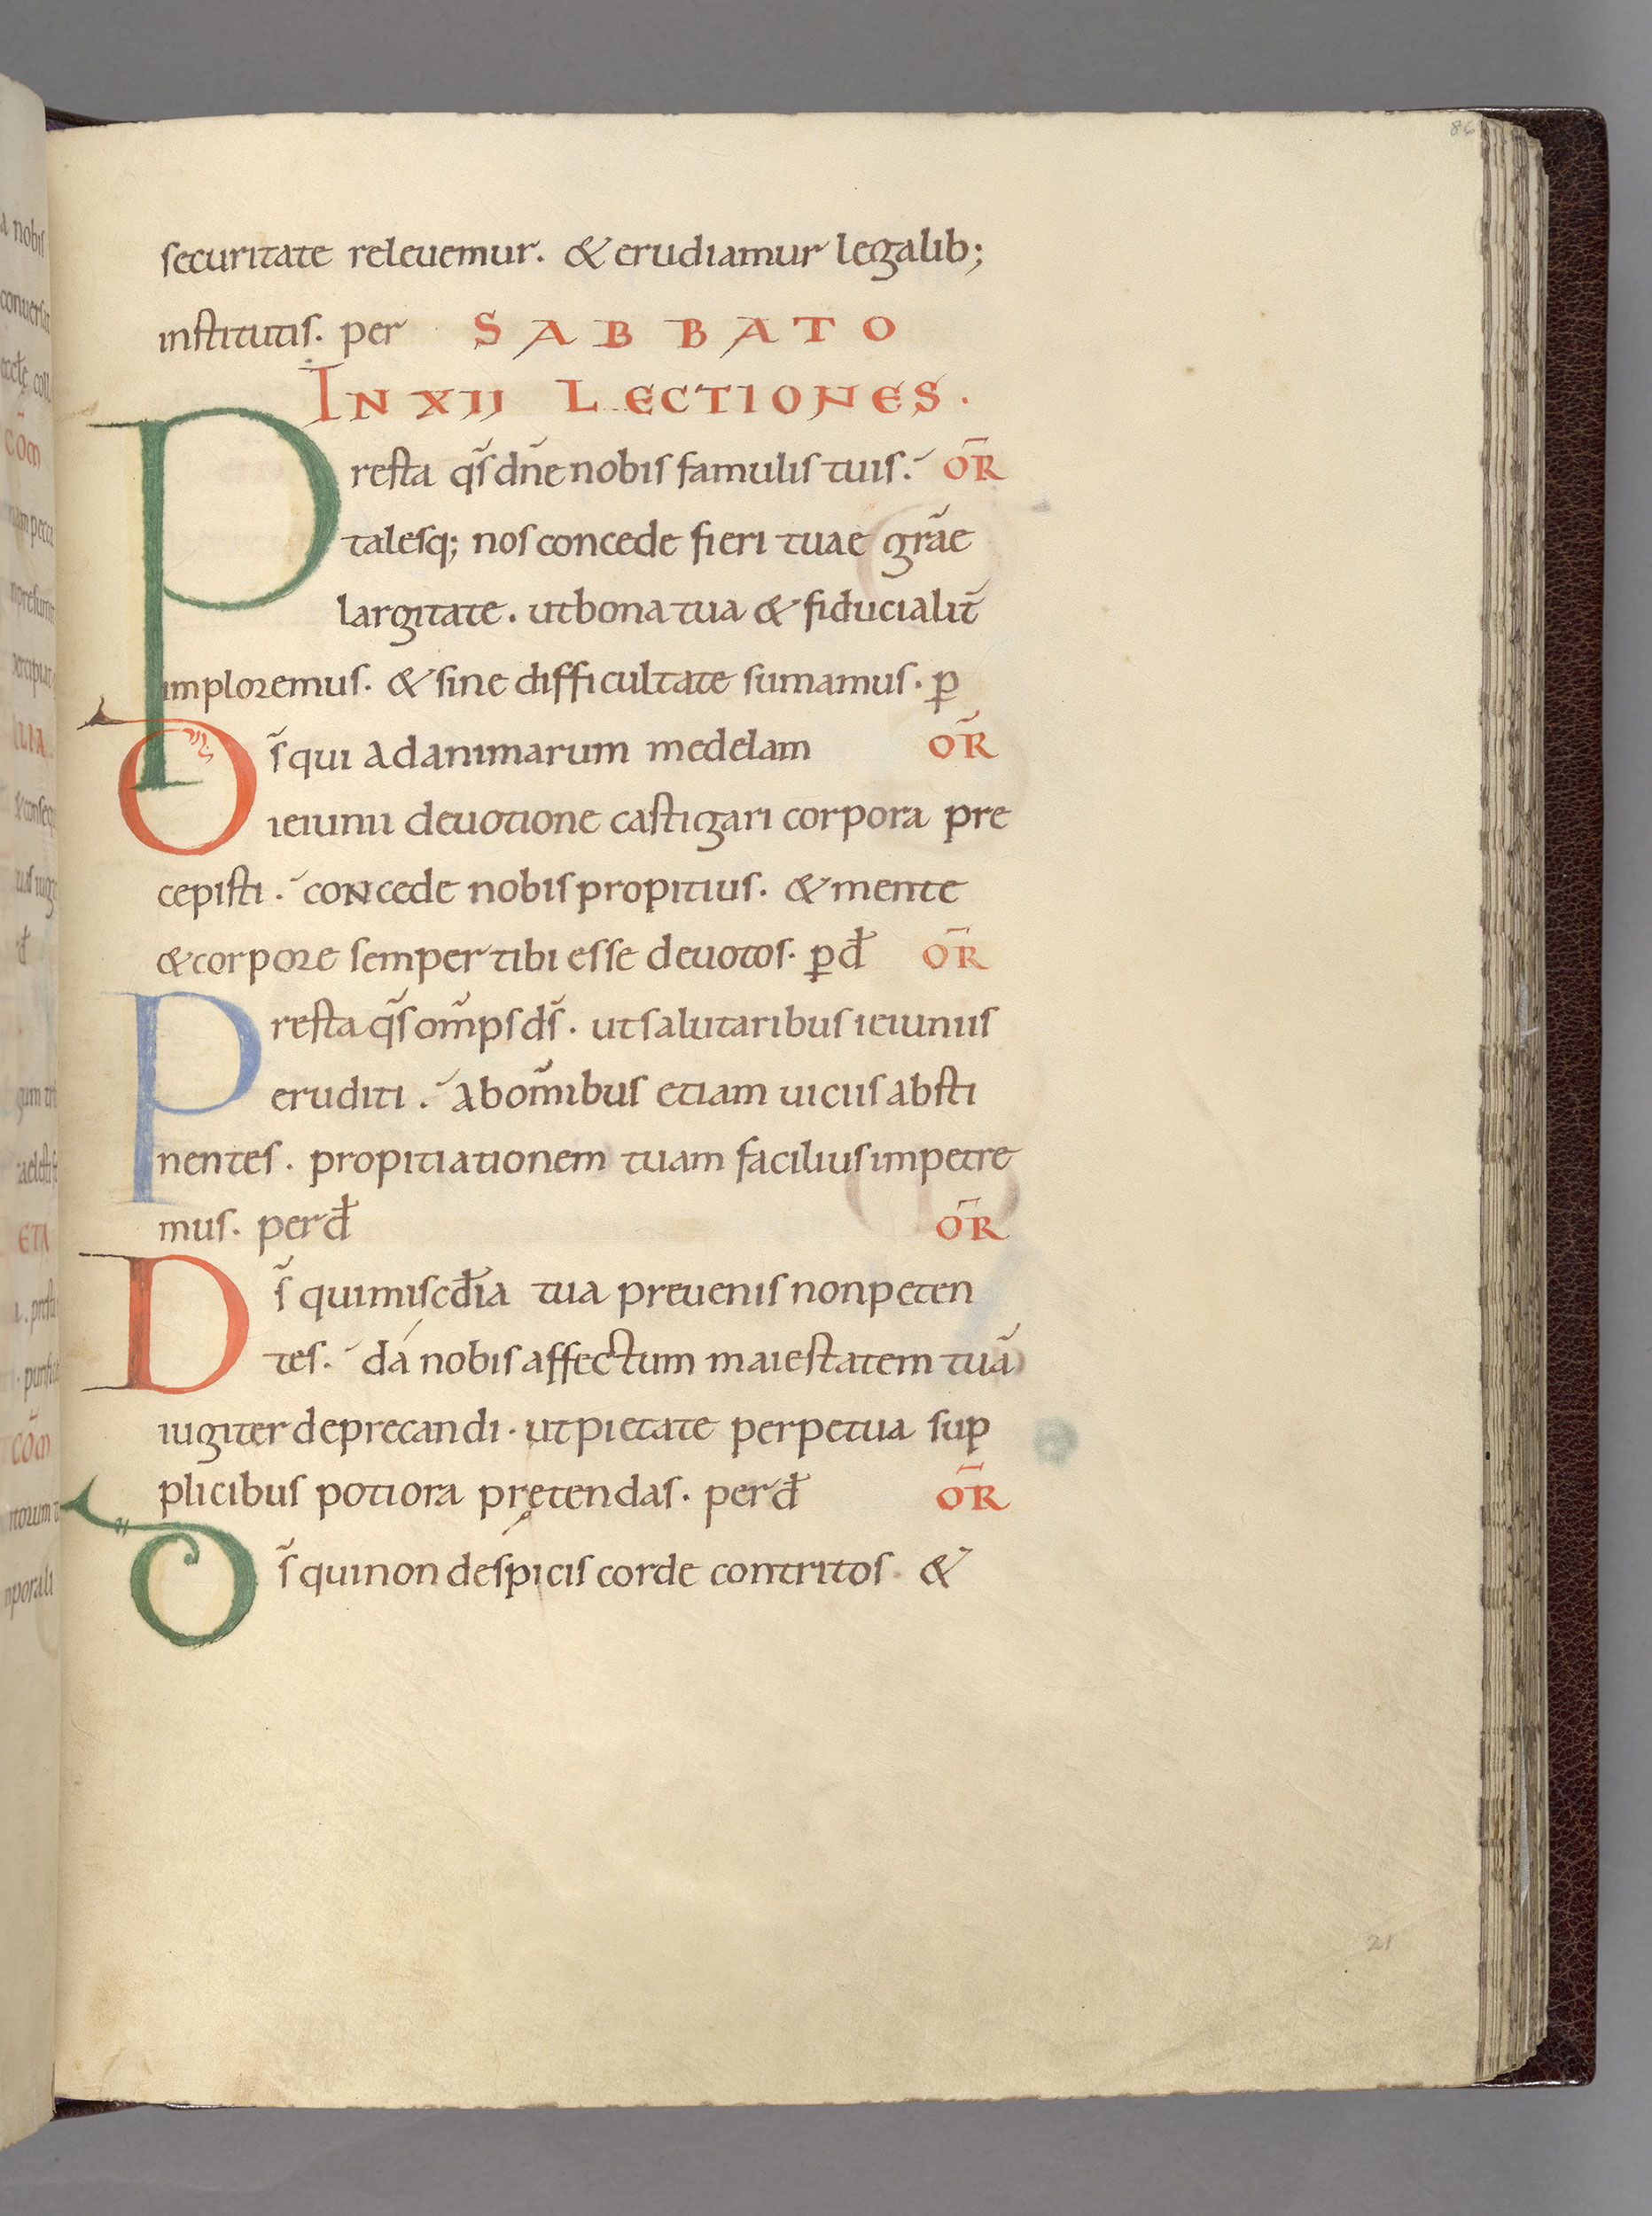 86
securitate releuemur. & erudiamur legalib;
institutis. per SABBATO
IN XII LECTIONES.
Presta qs̄ dn̄e nobis famulis tuis. OR̄
talesq; nos concede fieri tuae grāe
largitate. ut bona tua & fiducialit̄
imploremus. & sine difficultate sumamus. ꝑ
Ds̄ qui ad animarum medelam OR̄
ieiunii deuotione castigari corpora pre
cepisti. concede nobis propitius. & mente
& corpore semper tibi esse deuotos. ꝑ đ OR̄
Presta qs̄ om̄ps ds̄. ut salutaribus ieiuniis
eruditi. ab om̄ibus etiam uiciis absti
nentes. propitiationem tuam facilius impetre
mus. per đ OR̄
Ds̄ qui misc̄dia tua preuenis non peten
tes. dá nobis affectum maiestatem tuā
iugiter deprecandi. ut pietate perpetua sup
plicibus potiora prętendas. per đ OR̄
Ds̄ qui non despicis corde contritos. &
21